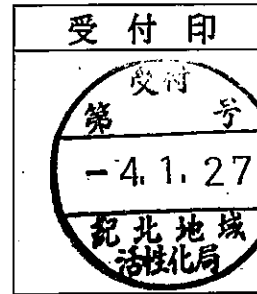 受付印
受付
第 号
-4.1.27
紀北地域
活性化局